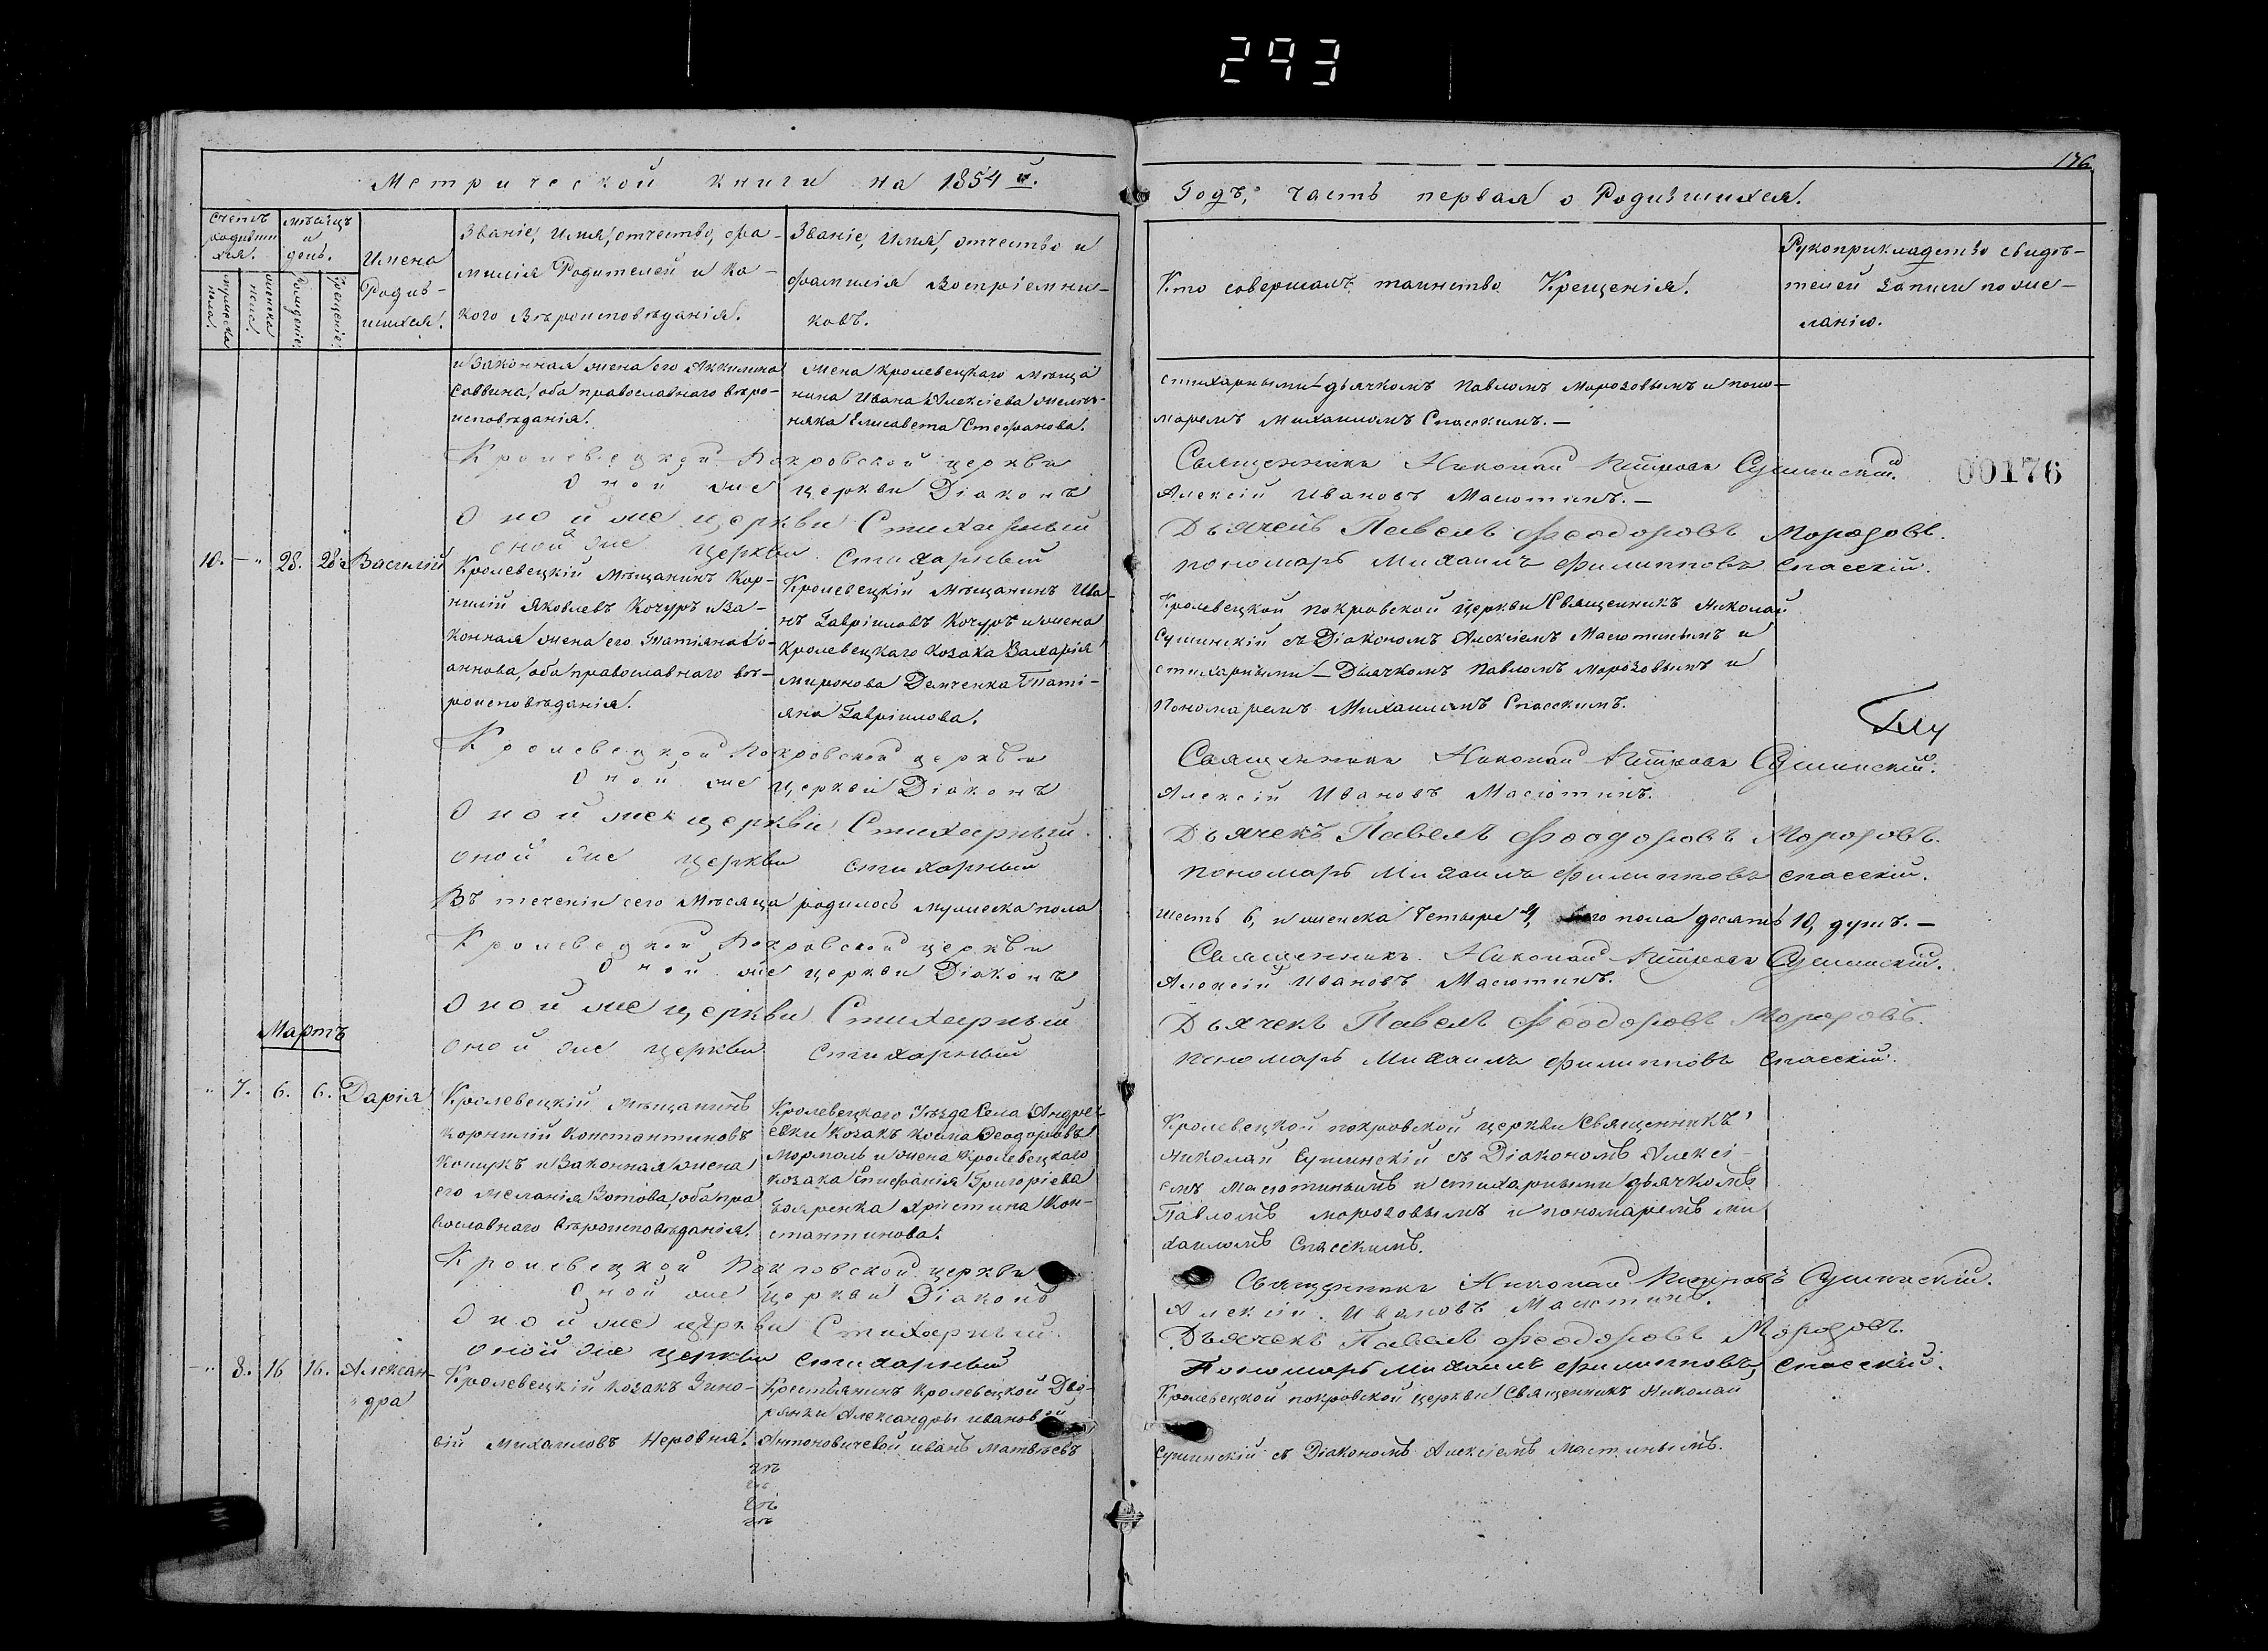 293
176.
Метрической книги на 1854 й.
Годъ, часть первая о Родившихся.
Счетъ родивши хся.
мужеска пола.
женска пола.
Мѣсяцъ и день.
Рожденіе.
Крещеніе.
Имена
Родив-
шихся.
Званіе, Имя, отчество, фа-
милія Родителей и ка-
кого Вѣроисповѣданія.
Званіе, Имя, отчество и
фамилія Воспріемни-
ковъ.
Кто совершалъ таинство Крещенія.
Рукоприкладство свидѣ-
телей Записи по же-
ланію.
и Законная жена его Акилина
Саввина, оба православнаго вѣро-
исповѣданія.
Жена Кролевецкаго мѣща
нина Ивана Алексіева
Елисавета Стефанова.
стихарными дьячкомъ Павломъ Морозовымъ и поно-
маремъ Михаиломъ Спасскимъ.—
Кролевецкой Покровской церкви Священникъ Николай Петровъ Сушинскій.
00176
Оной же церкви Діаконъ Алексій Ивановъ Масютинъ.—
Оной же церкви Стихарный Дьячекъ Павелъ Феодоровъ Морозовъ.
оной же церкви стихарный пономарь Михаилъ Филипповъ Спасскій.
10. — " 28. 28. Василій
Кролевецкій Мѣщанинъ Кор-
нилій Яковлевъ Кочуръ и За-
конная жена его Татіана Іо-
аннова, оба православнаго вѣ-
роисповѣданія.
Кролевецкій Мѣщанинъ Ива-
нъ Гавріиловъ Кочуръ и жена
Кролевецкаго Козака Захарія
Миронова Демченка Таті-
яна Гавріилова.
Кролевецкой Покровской Церкви Священникъ Николай
Сушинскій съ Діакономъ Алексіемъ Масютинымъ и
стихарными — Дьячкомъ Павломъ Морозовымъ и
Пономаремъ Михаиломъ Спасскимъ.
Кролевецкой Покровской церкви Священникъ Николай Петровъ Сушинскій.
Оной же церкви Діаконъ Алексій Ивановъ Масютинъ.
Оной же церкви Стихарный Дьячекъ Павелъ Феодоровъ Морозовъ.
оной же церкви стихарный пономарь Михаилъ Филипповъ Спасскій.
Въ теченіи сего Мѣсяца родилось мужеска пола шесть 6, и женска Четыре 4, пола десять 10, душъ.—
Кролевецкой Покровской церкви Священникъ Николай Петровъ Сушинскій.
Оной же церкви Діаконъ Алексій Ивановъ Масютинъ.
Оной же церкви Стихарный Дьячекъ Павелъ Феодоровъ Морозовъ.
оной же церкви стихарный пономарь Михаилъ Филипповъ Спасскій.
Мартъ
" 7. 6. 6. Дарія
Кролевецкій Мѣщанинъ
Корнилій Константиновъ
и Законная жена
его Меланія Зотова, оба пра
вославнаго Вѣроисповѣданія.
Кролевецкаго Уѣзда Села Андре-
евки Козакъ Феодоровъ
и жена Кролевецкаго
козака Епифанія Григоріева
Бояренка Христина Кон-
стантинова.
Кролевецкой покровской церкви Священникъ
Николай Сушинскій съ Діакономъ Алексі-
емъ Масютинымъ и стихарными дьячкомъ
Павломъ Морозовымъ и пономаремъ Ми
хаиломъ Спасскимъ.
Кролевецкой Покровской церкви Священникъ Николай Петровъ Сушинскій.
Оной же церкви Діаконъ Алексій Ивановъ Масютинъ.
Оной же церкви Стихарный Дьячекъ Павелъ Феодоровъ Морозовъ.
оной же церкви стихарный Пономарь Михаилъ Филипповъ Спасскій.
— " 8. 16 16. Алексан-
дра
Кролевецкій Козакъ Зино-
вій Михаиловъ Неровня.
Крестьянинъ Кролевецкой Дво-
рянки Александры Ивановой
Антоновичевой Иванъ Матвѣевъ
Кролевецкой покровской церкви Священникъ Николай
Сушинскій съ Діакономъ Алексіемъ Мастинымъ.